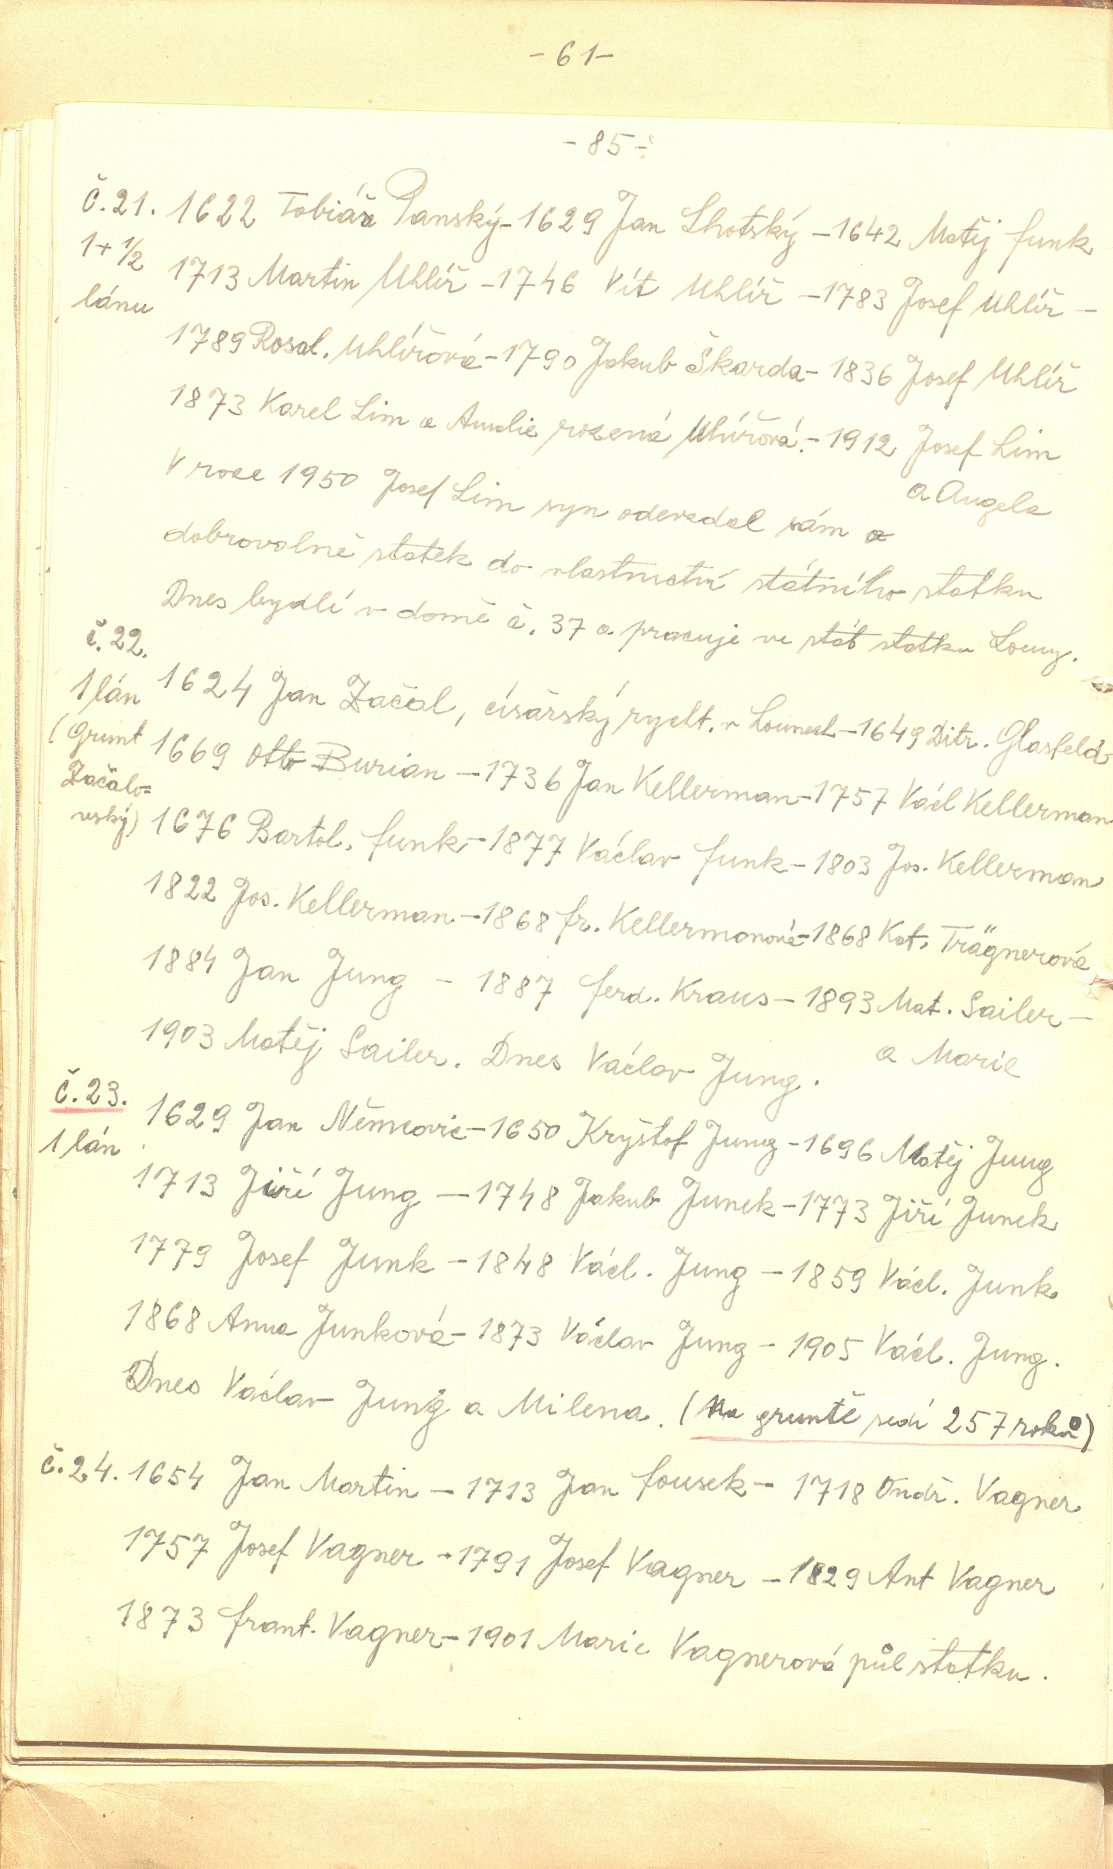 -61-
-85-
č.21. 1622 Tobiáš Panský - 1629 Jan Lhotský - 1642 Matěj Funk
1+½ 1713 Martin Uhlíř - 1746 Vít Uhlíř - 1783 Josef Uhlíř -
lánu
1789 Rosal. Uhlířová - 1790 Jakub Škarda - 1836 Josef Uhlíř
1873 Karel Lim a Amalie rozená Uhlířová. - 1912 Josef Lim
a Angela
V roce 1950 Josef Lim syn odevzdal sám a
dobrovolně statek do vlastnictví státního statku
Dnes bydlí v domě č. 37 a pracuje ve stát statku Louny.
č.22.
1 lán 1624 Jan Začal, císařský rycht. v Lounech - 1649 Ditr. Glasfeld
(Grunt 1669 Otto Burian - 1736 Jan Kellerman - 1757 Václ Kellerman
Začalo=
veský) 1676 Bartol. Funk - 1877 Václav Funk - 1803 Jos. Kellerman
1822 Jos. Kellerman - 1868 Fr. Kellermanová - 1868 Kat. Trägnerová
1884 Jan Jung - 1887 Ferd. Kraus - 1893 Mat. Sailer -
a Marie
1903 Matěj Sailer. Dnes Václav Jung.
č.23. 1629 Jan Němcovic - 1650 Kryštof Jung - 1696 Matěj Jung
1 lán
1713 Jiří Jung - 1748 Jakub Junek - 1773 Jiří Junek
1779 Josef Junk - 1848 Václ. Jung - 1859 Václ. Junk
1868 Anna Junková - 1873 Václav Jung - 1905 Václ. Jung.
Dnes Václav Jung a Milena. (Na gruntě sedí 257 roků)
č.24. 1654 Jan Martin - 1713 Jan Fousek - 1718 Ondř. Vagner
1757 Josef Vagner - 1791 Josef Vagner - 1829 Ant Vagner
1873 Frant. Vagner - 1901 Marie Vagnerová půl statku.